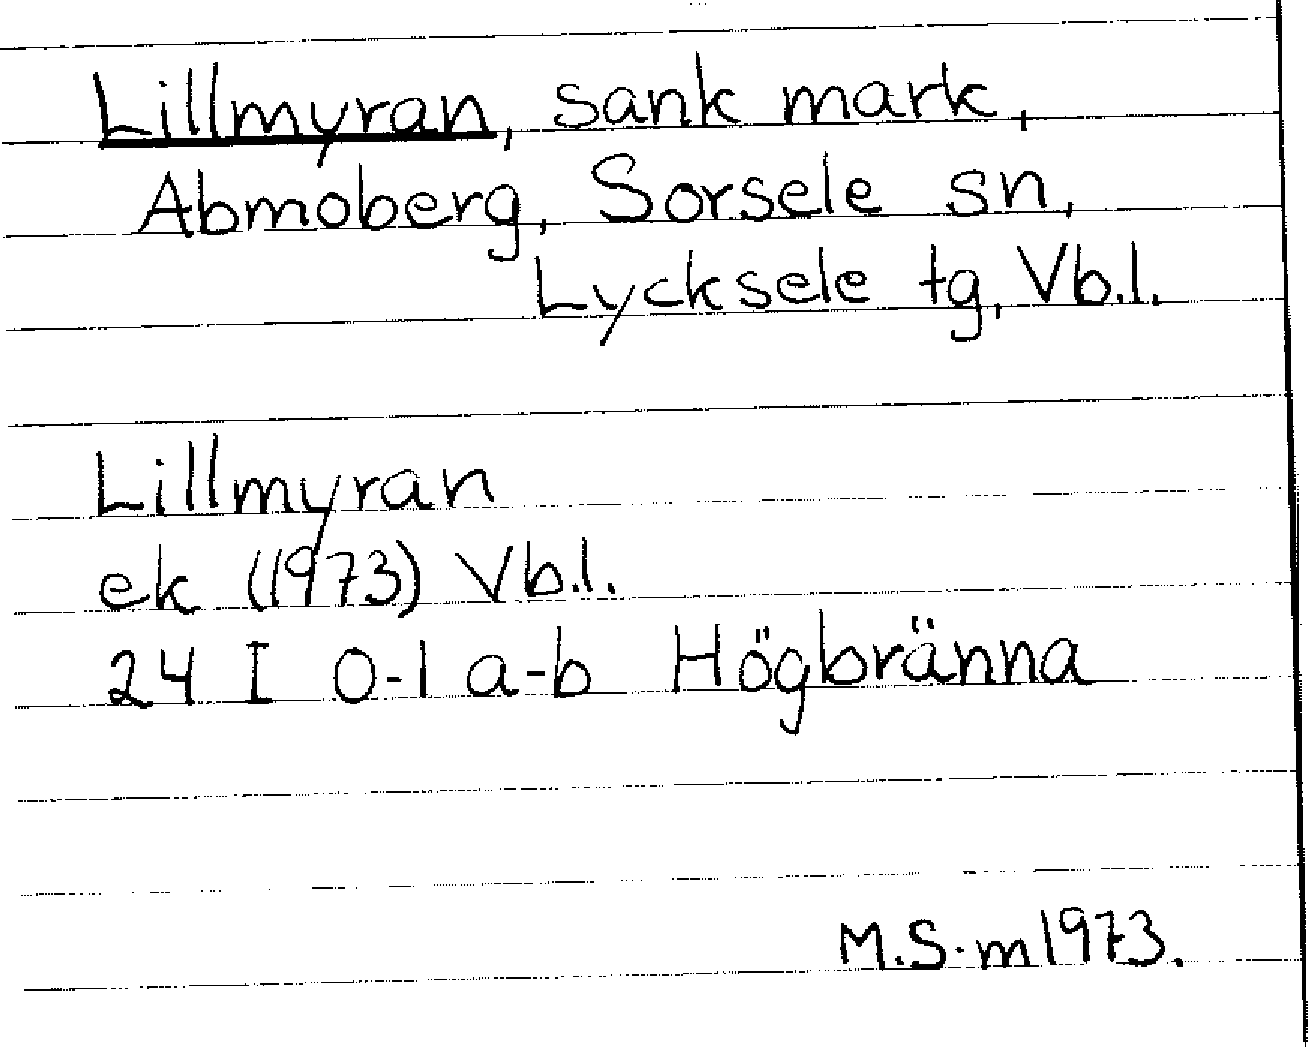 Lillmyran, sank mark,
Abmoberg, Sorsele sn,
Lycksele tg, Vb.l.
Lillmyran
ek (1973) Vb.l.
24 I 0-1 a-b Högbränna
M.S.m 1973.